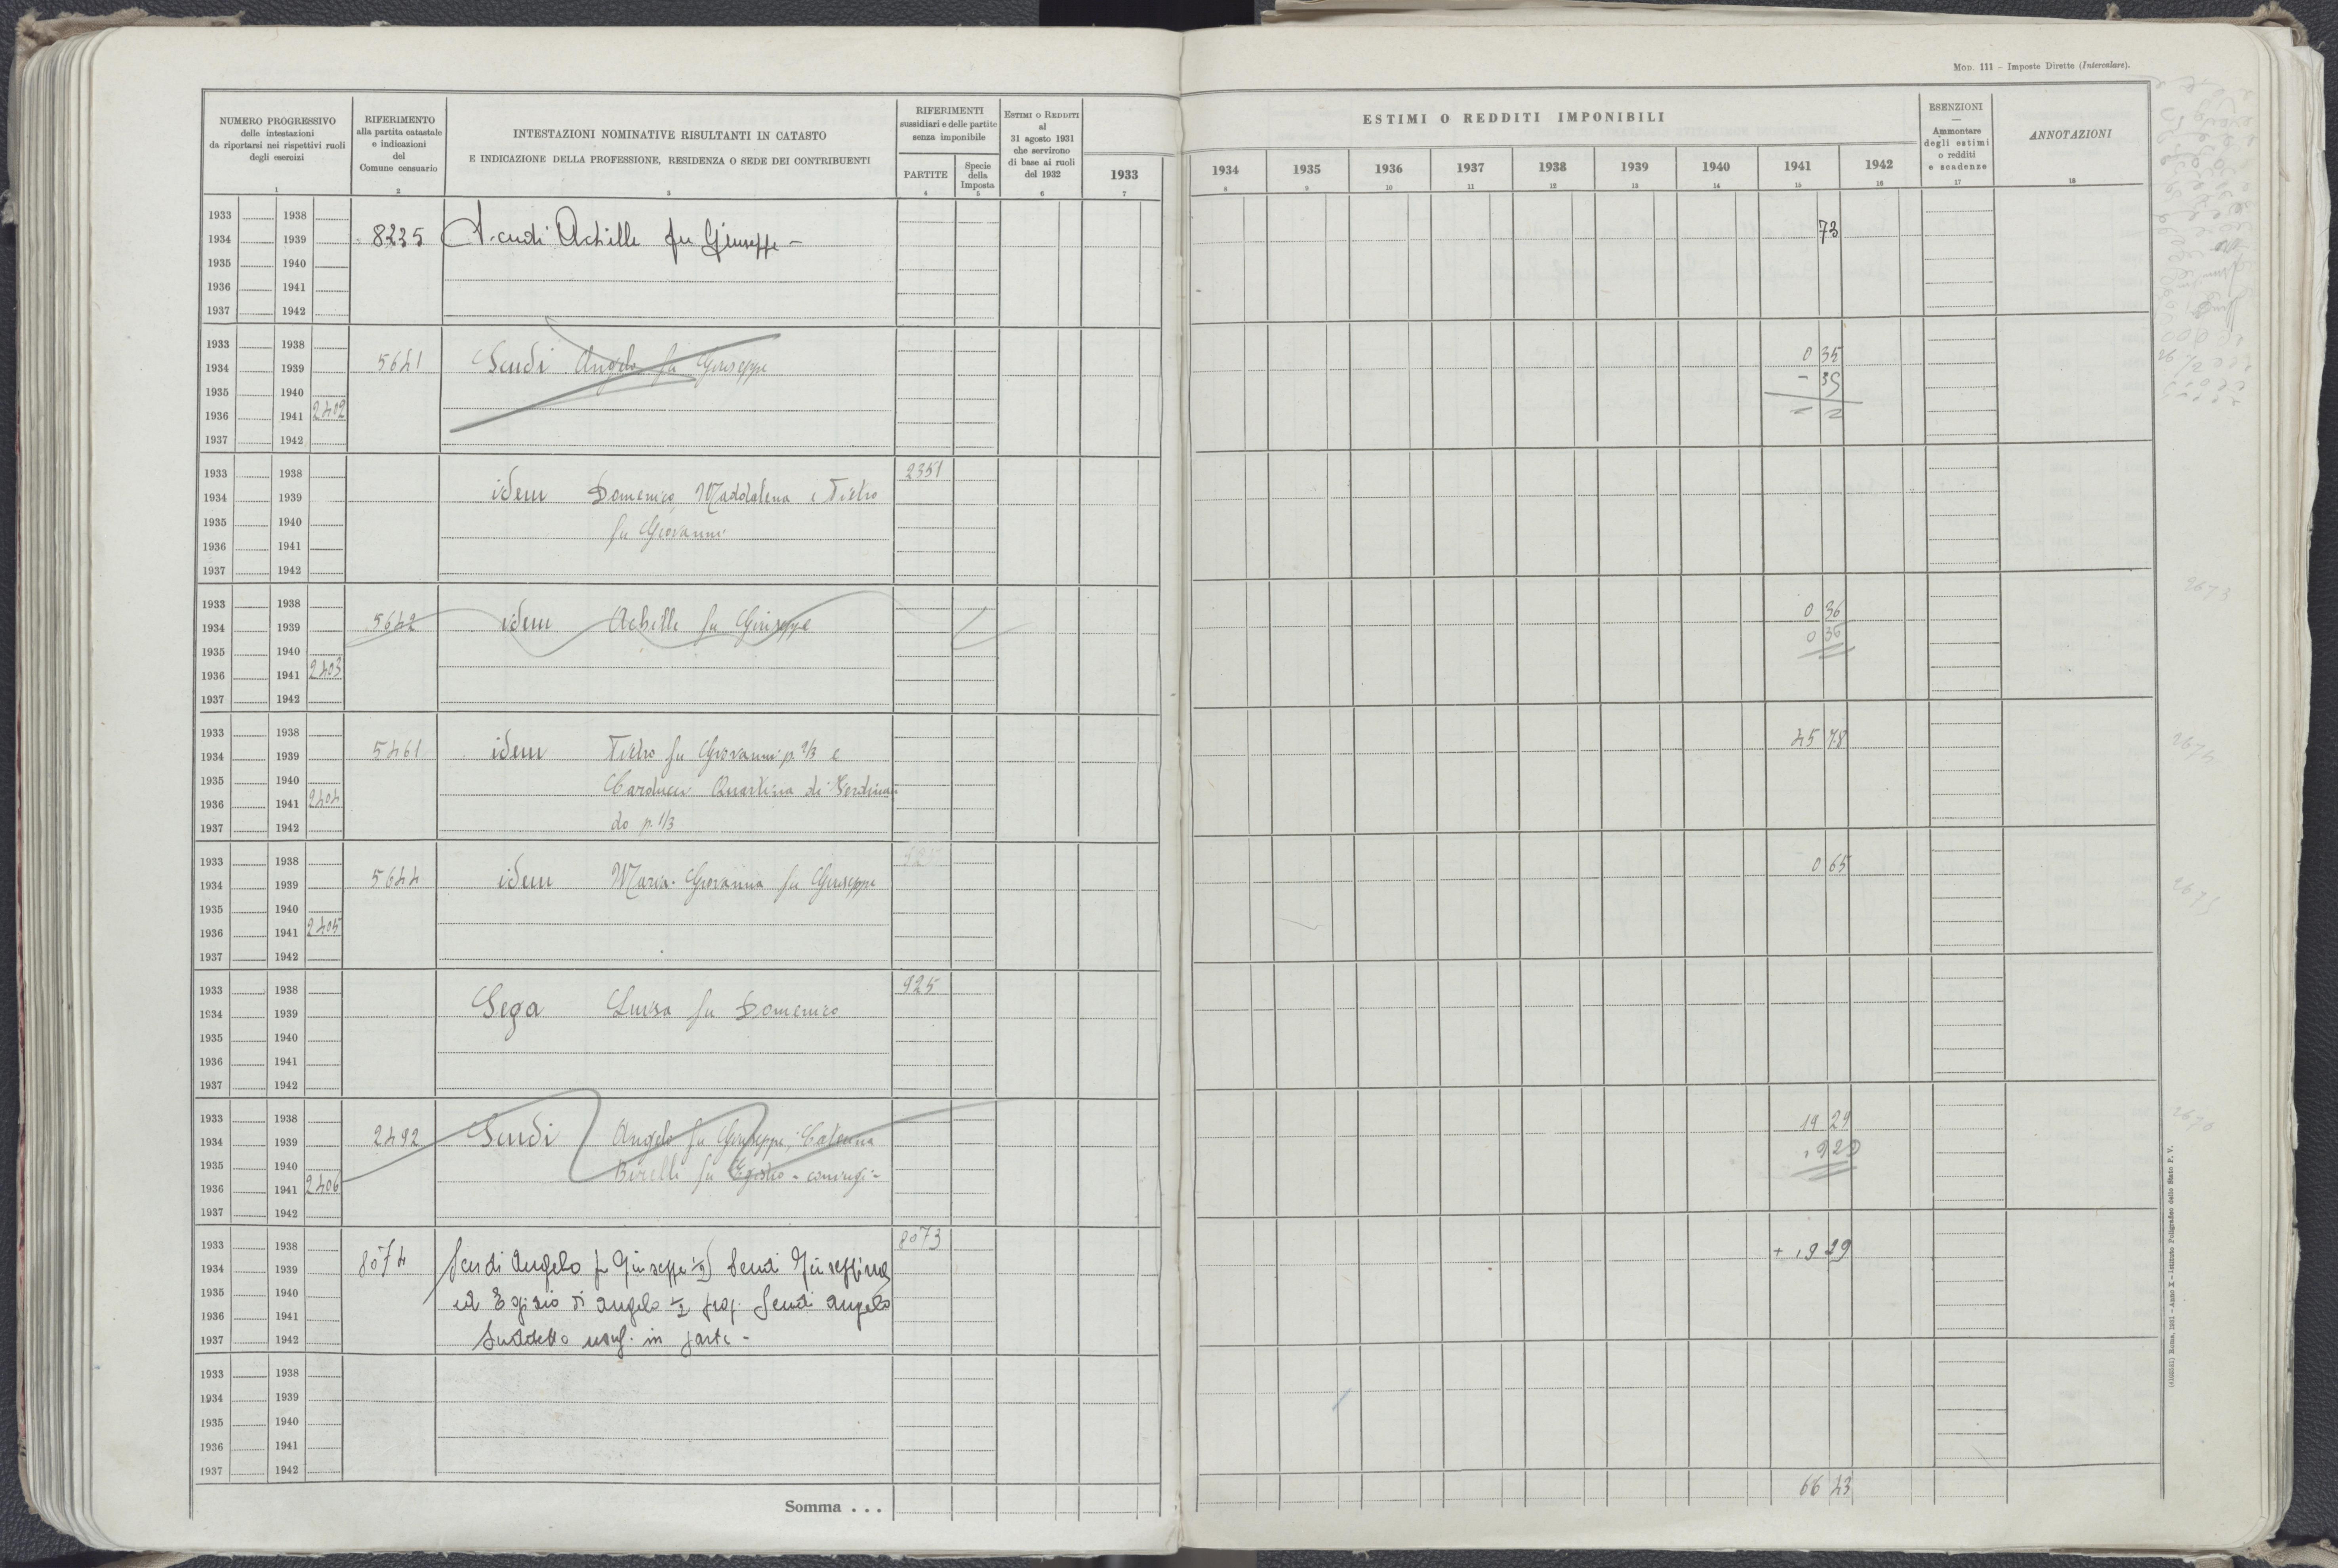 MOD. 111 – Imposte Dirette (Intercalare).
NUMERO PROGRESSIVO
delle intestazioni
da riportarsi nei rispettivi ruoli
degli esercizi
1
RIFERIMENTO
alla partita catastale
e indicazioni
del
Comune censuario
2
INTESTAZIONI NOMINATIVE RISULTANTI IN CATASTO
E INDICAZIONE DELLA PROFESSIONE, RESIDENZA O SEDE DEI CONTRIBUENTI
3
RIFERIMENTI
sussidiari e delle partite
senza imponibile
PARTITE
4
Specie
della
Imposta
5
ESTIMI O REDDITI
al
31 agosto 1931
che servirono
di base ai ruoli
del 1932
6
1933
7
ESTIMI O REDDITI IMPONIBILI
1934 1935 1936 1937 1938 1939 1940 1941 1942
8 9 10 11 12 13 14 15 16
ESENZIONI
—
Ammontare
degli estimi
o redditi
e scadenze
17
ANNOTAZIONI
18
1933 1938
1934 1939 8235 Scudi Achille fu Giuseppe – 73
1935 1940
1936 1941
1937 1942
1933 1938
1934 1939 5641 Scudi Angelo fu Giuseppe 0 35
1935 1940 – 35
1936 1941 2402
1937 1942
1933 1938 2351
1934 1939 idem Domenico, Maddalena e Pietro
1935 1940 fu Giovanni
1936 1941
1937 1942
1933 1938 2673
1934 1939 5642 idem Achille fu Giuseppe 0 36
1935 1940 0 36
1936 1941 2403
1937 1942
1933 1938
1934 1939 5461 idem Pietro fu Giovanni p. 2/3 e 45 78
1935 1940 Carducci Quartina di Ferdinan-
1936 1941 2404
1937 1942 do p. 1/3
1933 1938
1934 1939 5644 idem Maria Giovanna fu Giuseppe 0 65
1935 1940
1936 1941 2405
1937 1942
1933 1938 925
1934 1939 Sega Luisa fu Domenico
1935 1940
1936 1941
1937 1942
1933 1938
1934 1939 2492 Scudi Angelo fu Giuseppe, Caterina 19 29
1935 1940 Birelli fu Egisto - coniugi -
1936 1941 2406
1937 1942
1933 1938 8073
1934 1939 8074 Scudi Angelo fu Giuseppe 1/2 Scudi Giuseppina + 19 29
1935 1940
1936 1941 ed Egisio di Angelo 1/2 prop. Scudi Angelo
1937 1942 Suddetto usuf. in parte –
1933 1938
1934 1939
1935 1940
1936 1941
1937 1942
Somma . . . 66 43
Roma, 1931 – Anno X – Istituto Poligrafico dello Stato P. V.